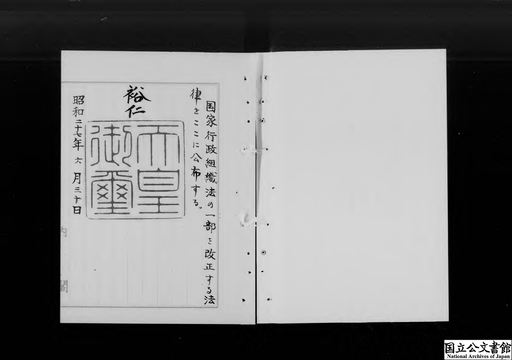 国家行政組織法の一部を改正する法
律をここに公布する。
裕仁
天皇
御璽
昭和二十七年六月三十日
内閣
国立公文書館
National Archives of Japan